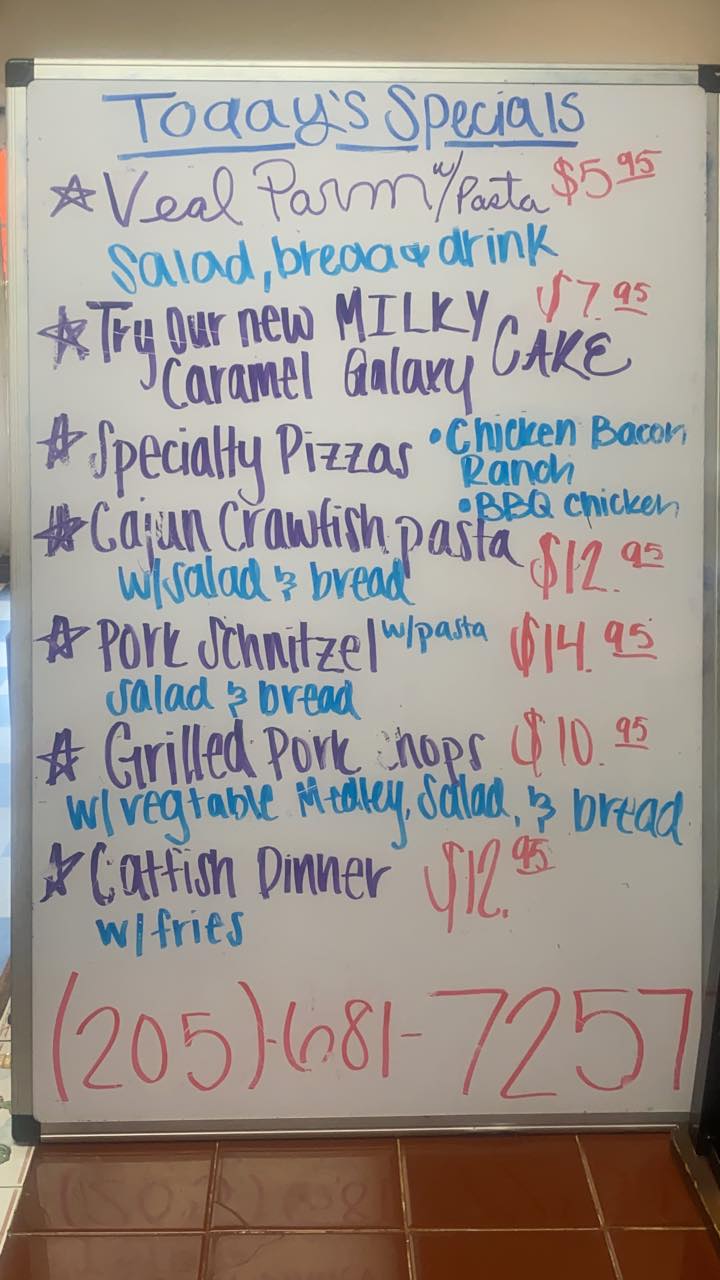 Today's Specials
☆ Veal Parm w/Pasta $5.95
Salad, bread & drink
$7.95
☆ Try our new MILKY
Caramel Galaxy CAKE
☆ Specialty Pizzas • Chicken Bacon
Ranch
• BBQ Chicken
☆ Cajun Crawfish pasta
w/salad & bread $12.95
☆ Pork Schnitzel w/pasta $14.95
salad & bread
☆ Grilled Pork chops $10.95
w/vegtable Medley, Salad, & bread
☆ Catfish Dinner $12.95
w/fries
(205)-681-7257